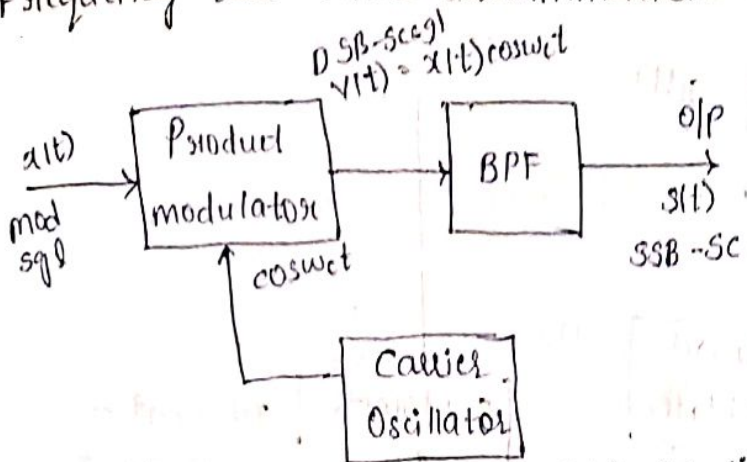 DSB-SC sgl
v(t) = x(t) coswct
x(t)
mod
sgl
Product
modulator
BPF
O/P
s(t)
SSB-SC
coswct
Carrier
Oscillator